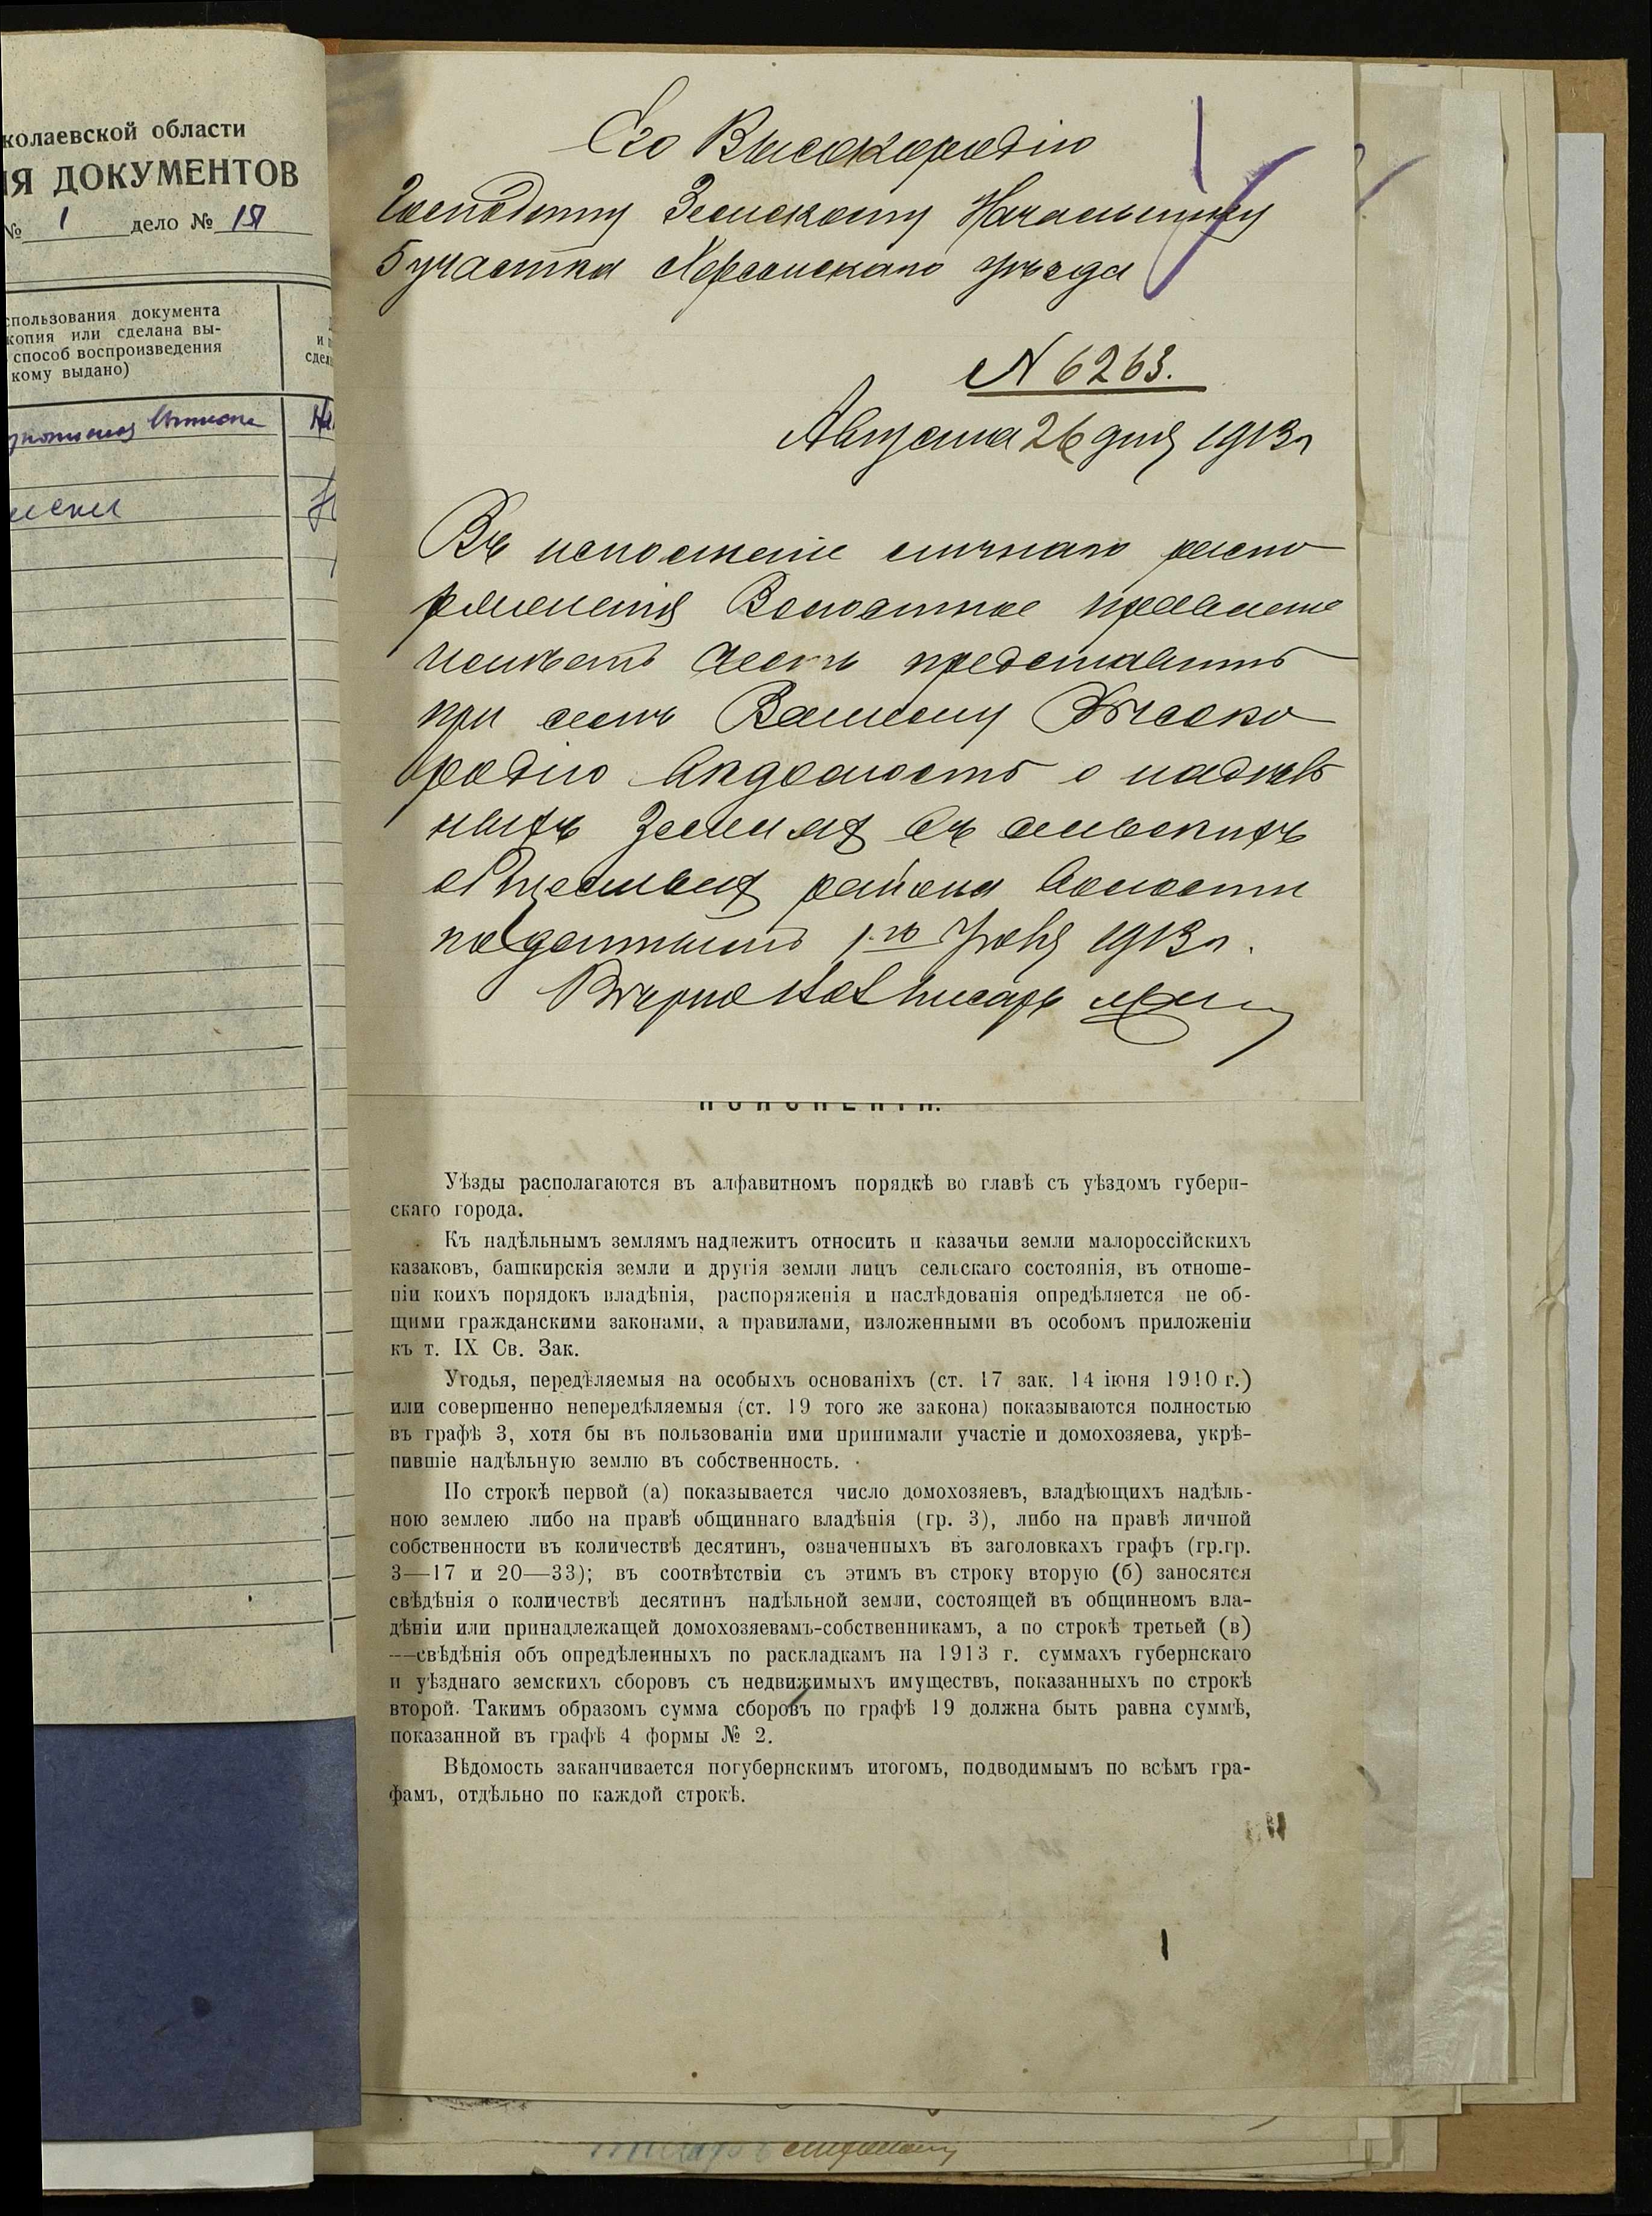 колаевской области
ИЯ ДОКУМЕНТОВ
№ 1 дело № 19
спользования документа
копия или сделана вы-
способ воспроизведения
кому выдано)
и
Его Высокородію
Господину Земскому Начальнику
5 участка Херсонскаго уѣзда
N 6263.
Августа 26 дня 1913 г
Въ исполненіе личнаго распо
ряженія Волостное правленіе
имѣетъ честь представить
при семъ Вашему Высоко
родію вѣдомость о надѣль
ныхъ землях въ сельскихъ
обществах района волости
по даннымъ 1-го Iюня 1913 г.
Вѣрно писарь
ПОЯСНЕНІЯ.
Уѣзды располагаются въ алфавитномъ порядкѣ во главѣ съ уѣздомъ губерн-
скаго города.
Къ надѣльнымъ землямъ надлежитъ относить и казачьи земли малороссійскихъ
казаковъ, башкирскія земли и другія земли лицъ сельскаго состоянія, въ отноше-
ніи коихъ порядокъ владѣнія, распоряженія и наслѣдованія опредѣляется не об-
щими гражданскими законами, а правилами, изложенными въ особомъ приложеніи
къ т. IX Св. Зак.
Угодья, передѣляемыя на особыхъ основаніхъ (ст. 17 зак. 14 іюня 1910 г.)
или совершенно непередѣляемыя (ст. 19 того же закона) показываются полностью
въ графѣ 3, хотя бы въ пользованіи ими принимали участіе и домохозяева, укрѣ-
пившіе надѣльную землю въ собственность.
По строкѣ первой (а) показывается число домохозяевъ, владѣющихъ надѣль-
ною землею либо на правѣ общиннаго владѣнія (гр. 3), либо на правѣ личной
собственности въ количествѣ десятинъ, означенныхъ въ заголовкахъ графъ (гр.гр.
3—17 и 20—33); въ соотвѣтствіи съ этимъ въ строку вторую (б) заносятся
свѣдѣнія о количествѣ десятинъ надѣльной земли, состоящей въ общинномъ вла-
дѣніи или принадлежащей домохозяевамъ-собственникамъ, а по строкѣ третьей (в)
—свѣдѣнія объ опредѣленныхъ по раскладкамъ на 1913 г. суммахъ губернскаго
и уѣзднаго земскихъ сборовъ съ недвижимыхъ имуществъ, показанныхъ по строкѣ
второй. Такимъ образомъ сумма сборовъ по графѣ 19 должна быть равна суммѣ,
показанной въ графѣ 4 формы № 2.
Вѣдомость заканчивается погубернскимъ итогомъ, подводимымъ по всѣмъ гра-
фамъ, отдѣльно по каждой строкѣ.